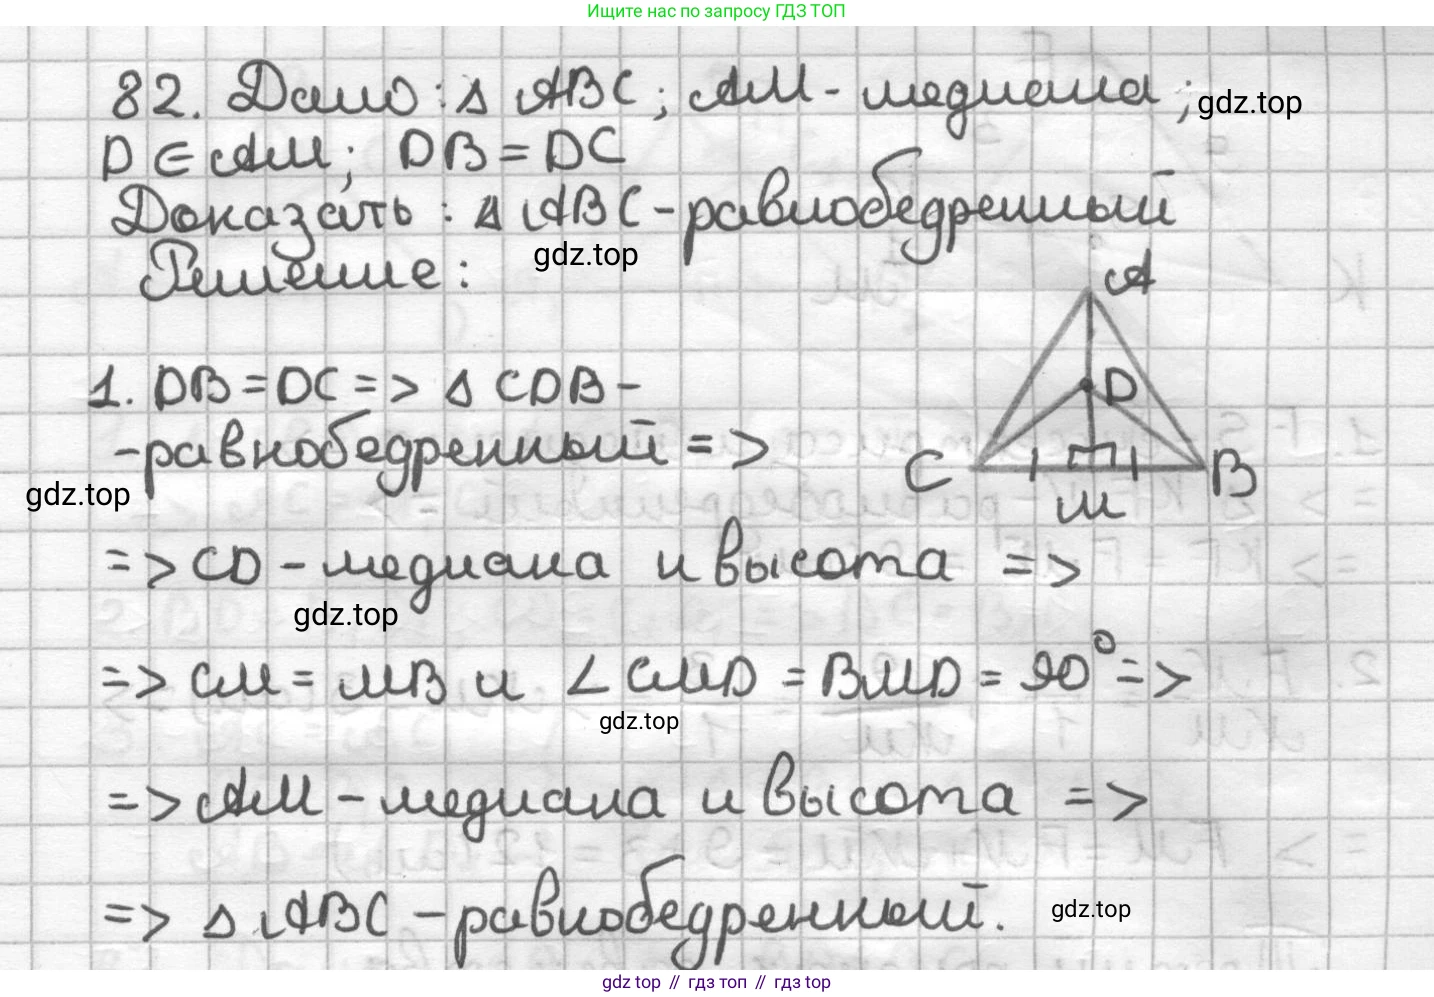 Ищите нас по запросу ГДЗ ТОП
82. Дано: △ ABC; AM - медиана; gdz.top
D ∈ AM; DB = DC
Доказать: △ ABC - равнобедренный
gdz.top
Решение:
A
1. DB = DC => △ CDB -
D
- равнобедренный =>
C
B
gdz.top
M
=> CD - медиана и высота =>
gdz.top
=> CM = MB и ∠ CMD = BMD = 90° =>
gdz.top
=> AM - медиана и высота =>
=> △ ABC - равнобедренный.
gdz.top
gdz top // гдз топ // гдз top